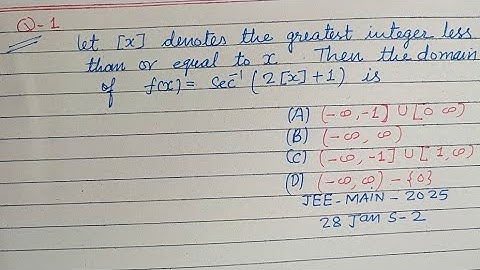 Q-1
Let [x] denotes the greatest integer less
than or equal to x. Then the domain
of f(x) = sec⁻¹(2[x]+1) is
(A) (-∞,-1] ∪ [0 ∞)
(B) (-∞, ∞)
(C) (-∞,-1] ∪ [1,∞)
(D) (-∞,∞) - {0}
JEE-MAIN-2025
28 Jan S-2